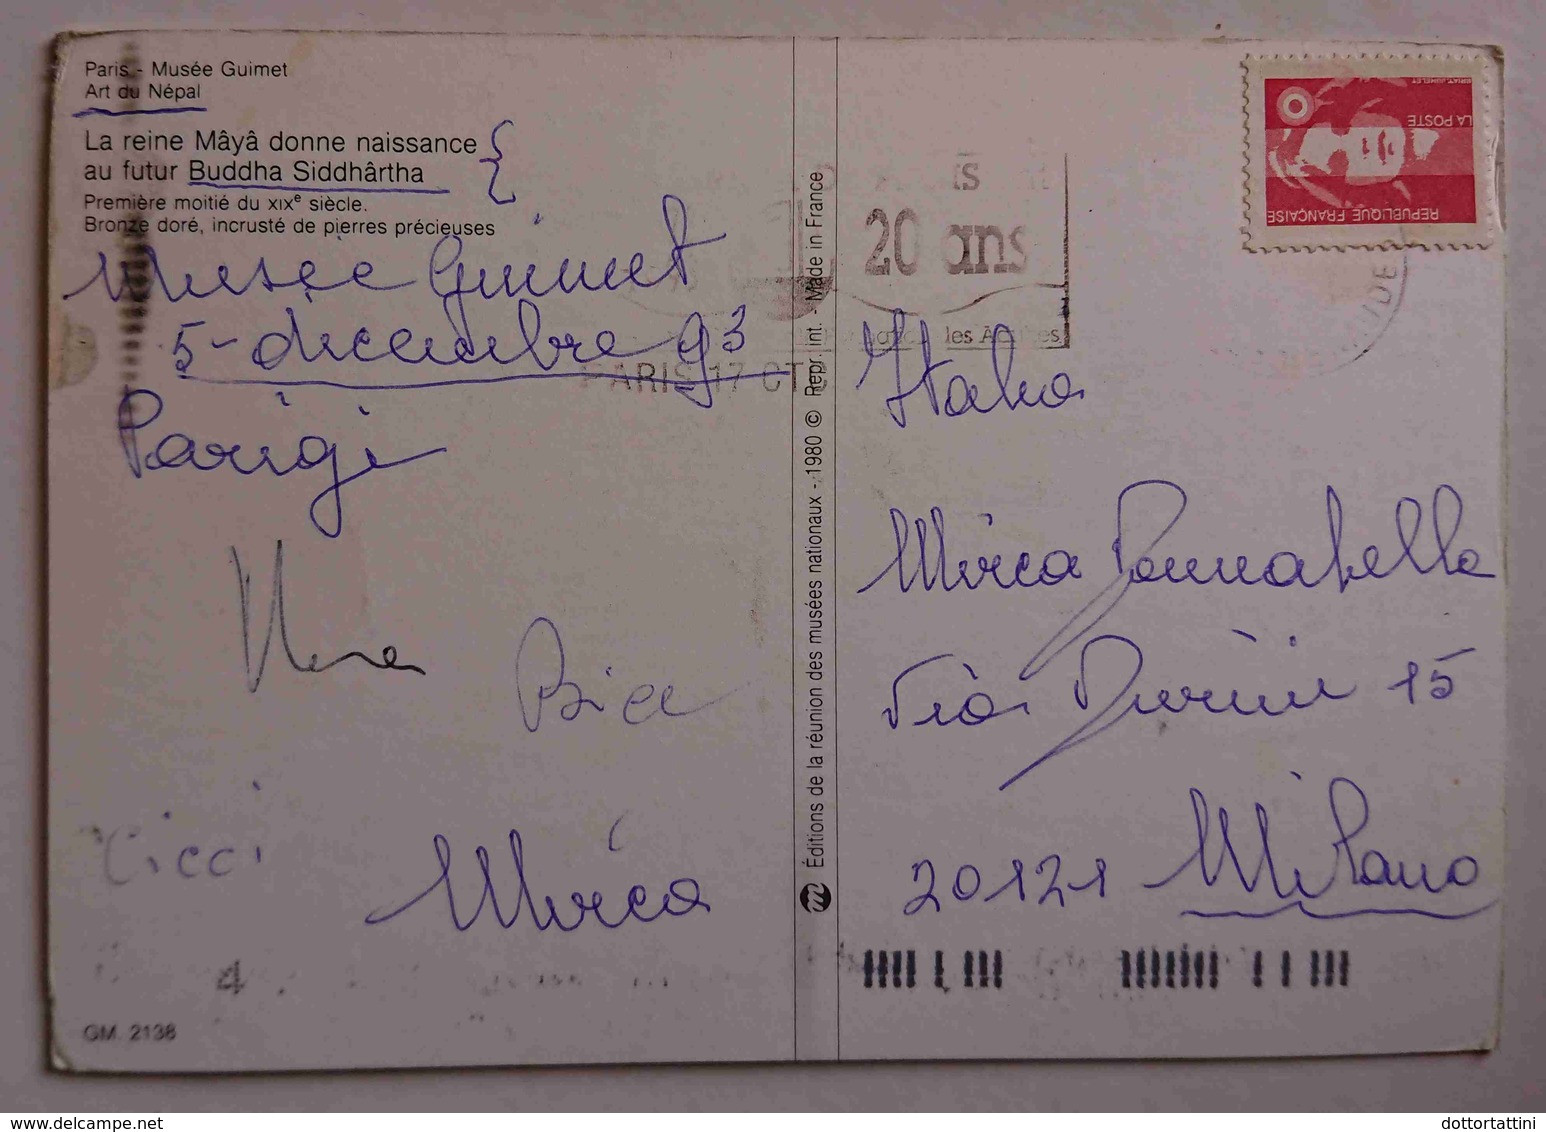 Paris - Musée Guimet
Art du Népal
La reine Mâyâ donne naissance
au futur Buddha Siddhârtha
Première moitié du XIXe siècle.
Bronze doré, incrusté de pierres précieuses
Musée Guimet
5-dicembre 93
Parigi
Bice
Cicci
Mirca
4
GM. 2138
Éditions de la réunion des musées nationaux - 1980 © Repr. int. - Made in France
20 ans
les
PARIS 17 CTC
LA POSTE
REPUBLIQUE FRANÇAISE
Italia
Mirca Donnabella
Via Durini 15
20121 Milano
dottortattini